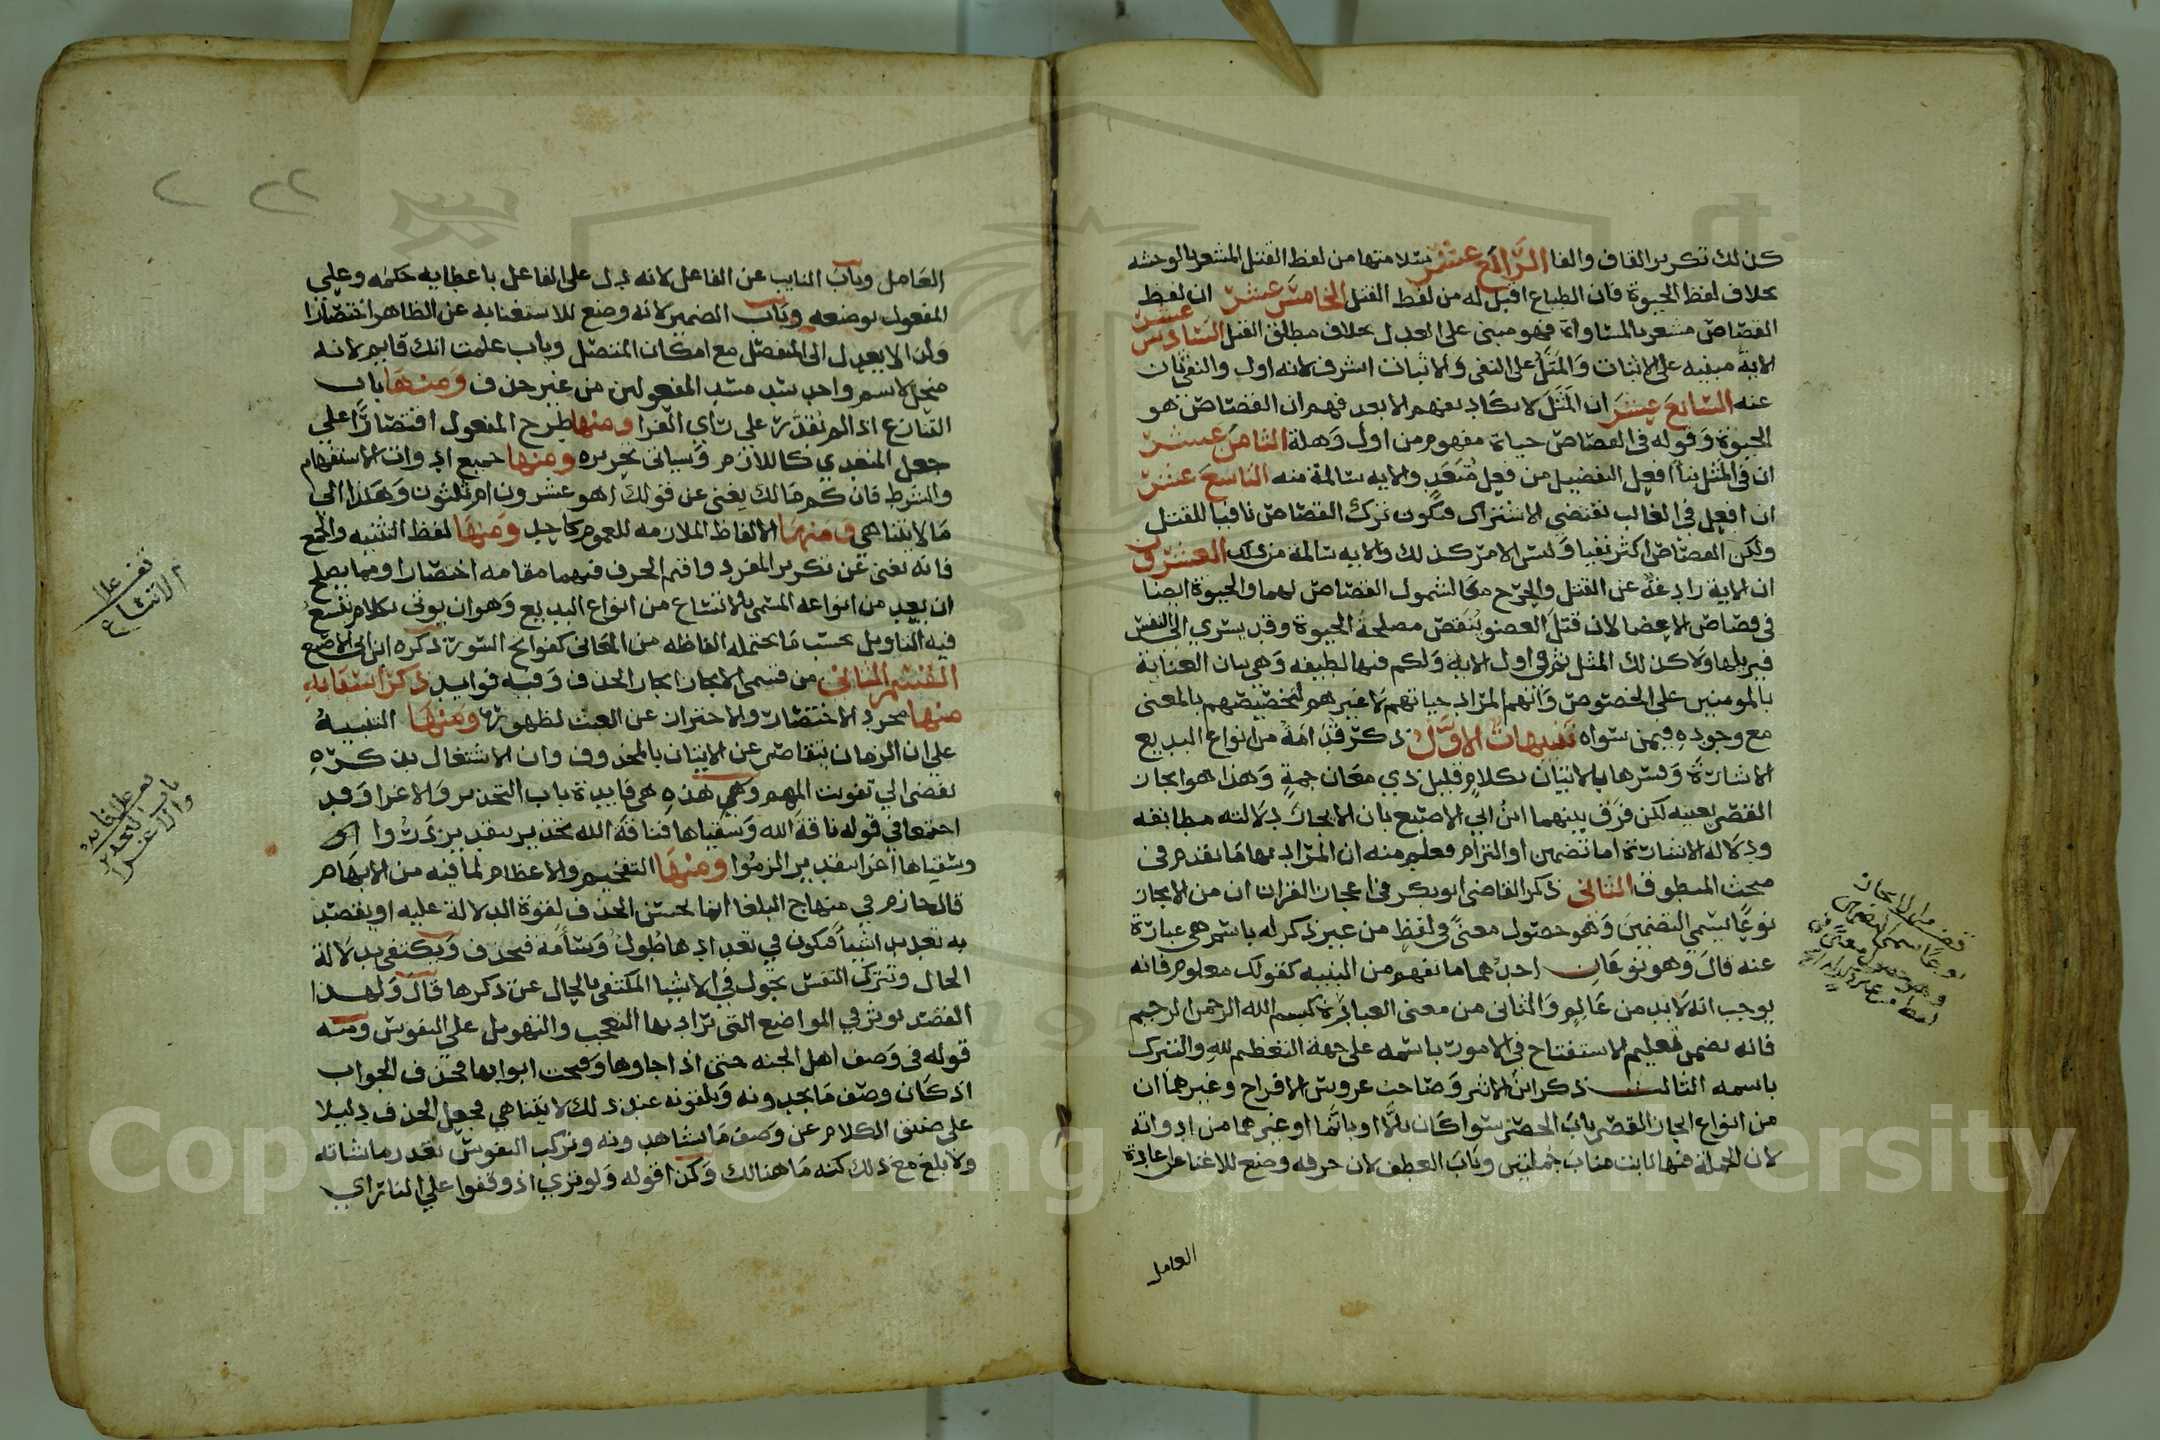 كذلك تكرير القاف والفا الرابع عشر سلامتها من لفظ القتل المشعر بالوحشه
بخلاف لفظ الحيوة فان الطباع اقبل له من لفظ القتل الخامس عشر ان لفظ
القصاص مشعر بالمساواة فهو مبنى على العدل بخلاف مطلق القتل السادس عشر
الاية مبنيه على الاثبات والمثل على النفى والاثبات اشرف لانه اول والنفى ثان
عنه السابع عشر ان المثل لا يكاد يفهم الا بعد فهم ان القصاص هو
الحيوة وقوله فى القصاص حياة مفهوم من اول وهلة الثامن عشر
ان فى المثل بنا افعل التفضيل من فعل متعد والايه سالمة منه التاسع عشر
ان افعل فى الغالب تقتضى الاشتراك فيكون ترك القصاص نافيا للقتل
ولكن القصاص اكثر نفيا وليس الامر كذلك والايه سالمة من ذلك العشرون
ان الاية رادعة عن القتل والجرح معا لشمول القصاص لهما والحيوة ايضا
فى قصاص الاعضا لان قتل العضو ينقص مصلحة الحيوة وقد يسري الى النفس
فيزيلها ولا كذلك المثل ثم فى اول الايه ولكم فيها لطيفه وهى بيان العناية
بالمومنين على الخصوص وانهم المراد حياتهم لا غيرهم لتخصيصهم بالمعنى
مع وجوده فيمن سواه تنبيهات الاول ذكر قدامة من انواع البديع
الاشارة وفسرها بالاتيان بكلام قليل ذي معان جمة وهذا هو ايجاز
القصر بعينه لكن فرق بينهما ابن ابي الاصبع بان الايجاز دلالته مطابقه
ودلالة الاشارة اما تضمين او التزام فعلم منه ان المراد بها ما تقدم فى
مبحث المنطوق الثانى ذكر القاضى ابو بكر فى اعجاز القران ان من الايجاز
نوعا يسمى التضمين وهو حصول معنى فى لفظ من غير ذكر له باسم هى عبارة
عنه قال وهو نوعان احدهما ما يفهم من البنيه كقولك معلوم فانه
يوجب انه لا بد من عالم والثانى من معنى العبارة كبسم الله الرحمن الرحيم
فانه تضمن تعليم الاستفتاح فى الامور باسمه على جهة التعظيم لله والتبرك
باسمه الثالث ذكر ابن الاثير وصاحب عروس الافراح وغيرهما ان
من انواع ايجاز القصر باب الحصر سوا كان بالا او بانما او غيرهما من ادواته
لان الجملة فيها نابت مناب جملتين وباب العطف لان حرفه وضع للاغنا عن اعادة
العامل
العامل وباب النايب عن الفاعل لانه دل على الفاعل باعطايه حكمه وعلى
المفعول بوضعه وباب الضمير لانه وضع للاستغنا به عن الظاهر اختصارا
ولذا لا يعدل الى المنفصل مع امكان المتصل وباب علمت انك قايم لانه
متحمل لاسم واحد سد مسد المفعولين من غير حذف ومنها باب
التنازع اذا لم نقدر على راي الفرا ومنها طرح المفعول اقتصارا على
جعل المتعدي كاللازم وسياتى تحريره ومنها جميع ادوات الاستفهام
والشرط فان كم مالك يغنى عن قولك اهو عشرون ام ثلثون وهكذا الى
ما لا يتناهى ومنها الالفاظ الملازمه للعموم كاحد ومنها لفظ التثنيه والجمع
فانه يغنى عن تكرير المفرد واقيم الحرف فيهما مقامه اختصارا ومما يصلح
ان يعد من انواعه المسمى بالاتساع من انواع البديع وهو ان يوتى بكلام يتسع
فيه التاويل بحسب ما يحتمله الفاظه من المعانى كفواتح السور ذكره ابن ابى الاصبع
القسم الثانى من قسمى الايجاز ايجاز الحذف وفيه فوايد ذكر اسبابه
منها مجرد الاختصار والاحتراز عن العبث لظهوره ومنها التنبيه
على ان الزمان يتقاصر عن الاتيان بالمحذوف وان الاشتغال بذكره
يفضى الى تفويت المهم وهى هذه هى فايدة باب التحذير والاغرا وقد
اجتمعا فى قوله ناقة الله وسقياها فناقة الله تحذير بتقدير ذروا
وسقياها اغرا بتقدير الزموا ومنها التفخيم والاعظام لما فيه من الابهام
قال حازم في منهاج البلغا انما يحسن الحذف لقوة الدلالة عليه او يقصد
به تعديد اشيا فيكون في تعدادها طول وسأمة فيحذف ويكتفى بدلالة
الحال وتترك النفس تجول في الاشيا المكتفى بالحال عن ذكرها قال ولهذا
القصد يوثر في المواضع التى يراد بها التعجب والتهويل على النفوس ومنه
قوله فى وصف اهل الجنه حتى اذا جاوها وفتحت ابوابها فحذف الجواب
اذ كان وصف ما يجدونه ويلقونه عند ذلك لا يتناهى فجعل الحذف دليلا
على ضيق الكلام عن وصف ما يشاهدونه وتركت النفوس تقدر ما شاته
ولا يبلغ مع ذلك كنه ما هنالك وكذا قوله ولو ترى اذ وقفوا على النار اي
قف على
الاتساع
قف على فايدة
باب التحذير
والاغرا
قف من الايجاز
نوعا يسمى التضمين
وهو حصول معنى فى
لفظ من غير ذكر له
Copyright © King Saud University